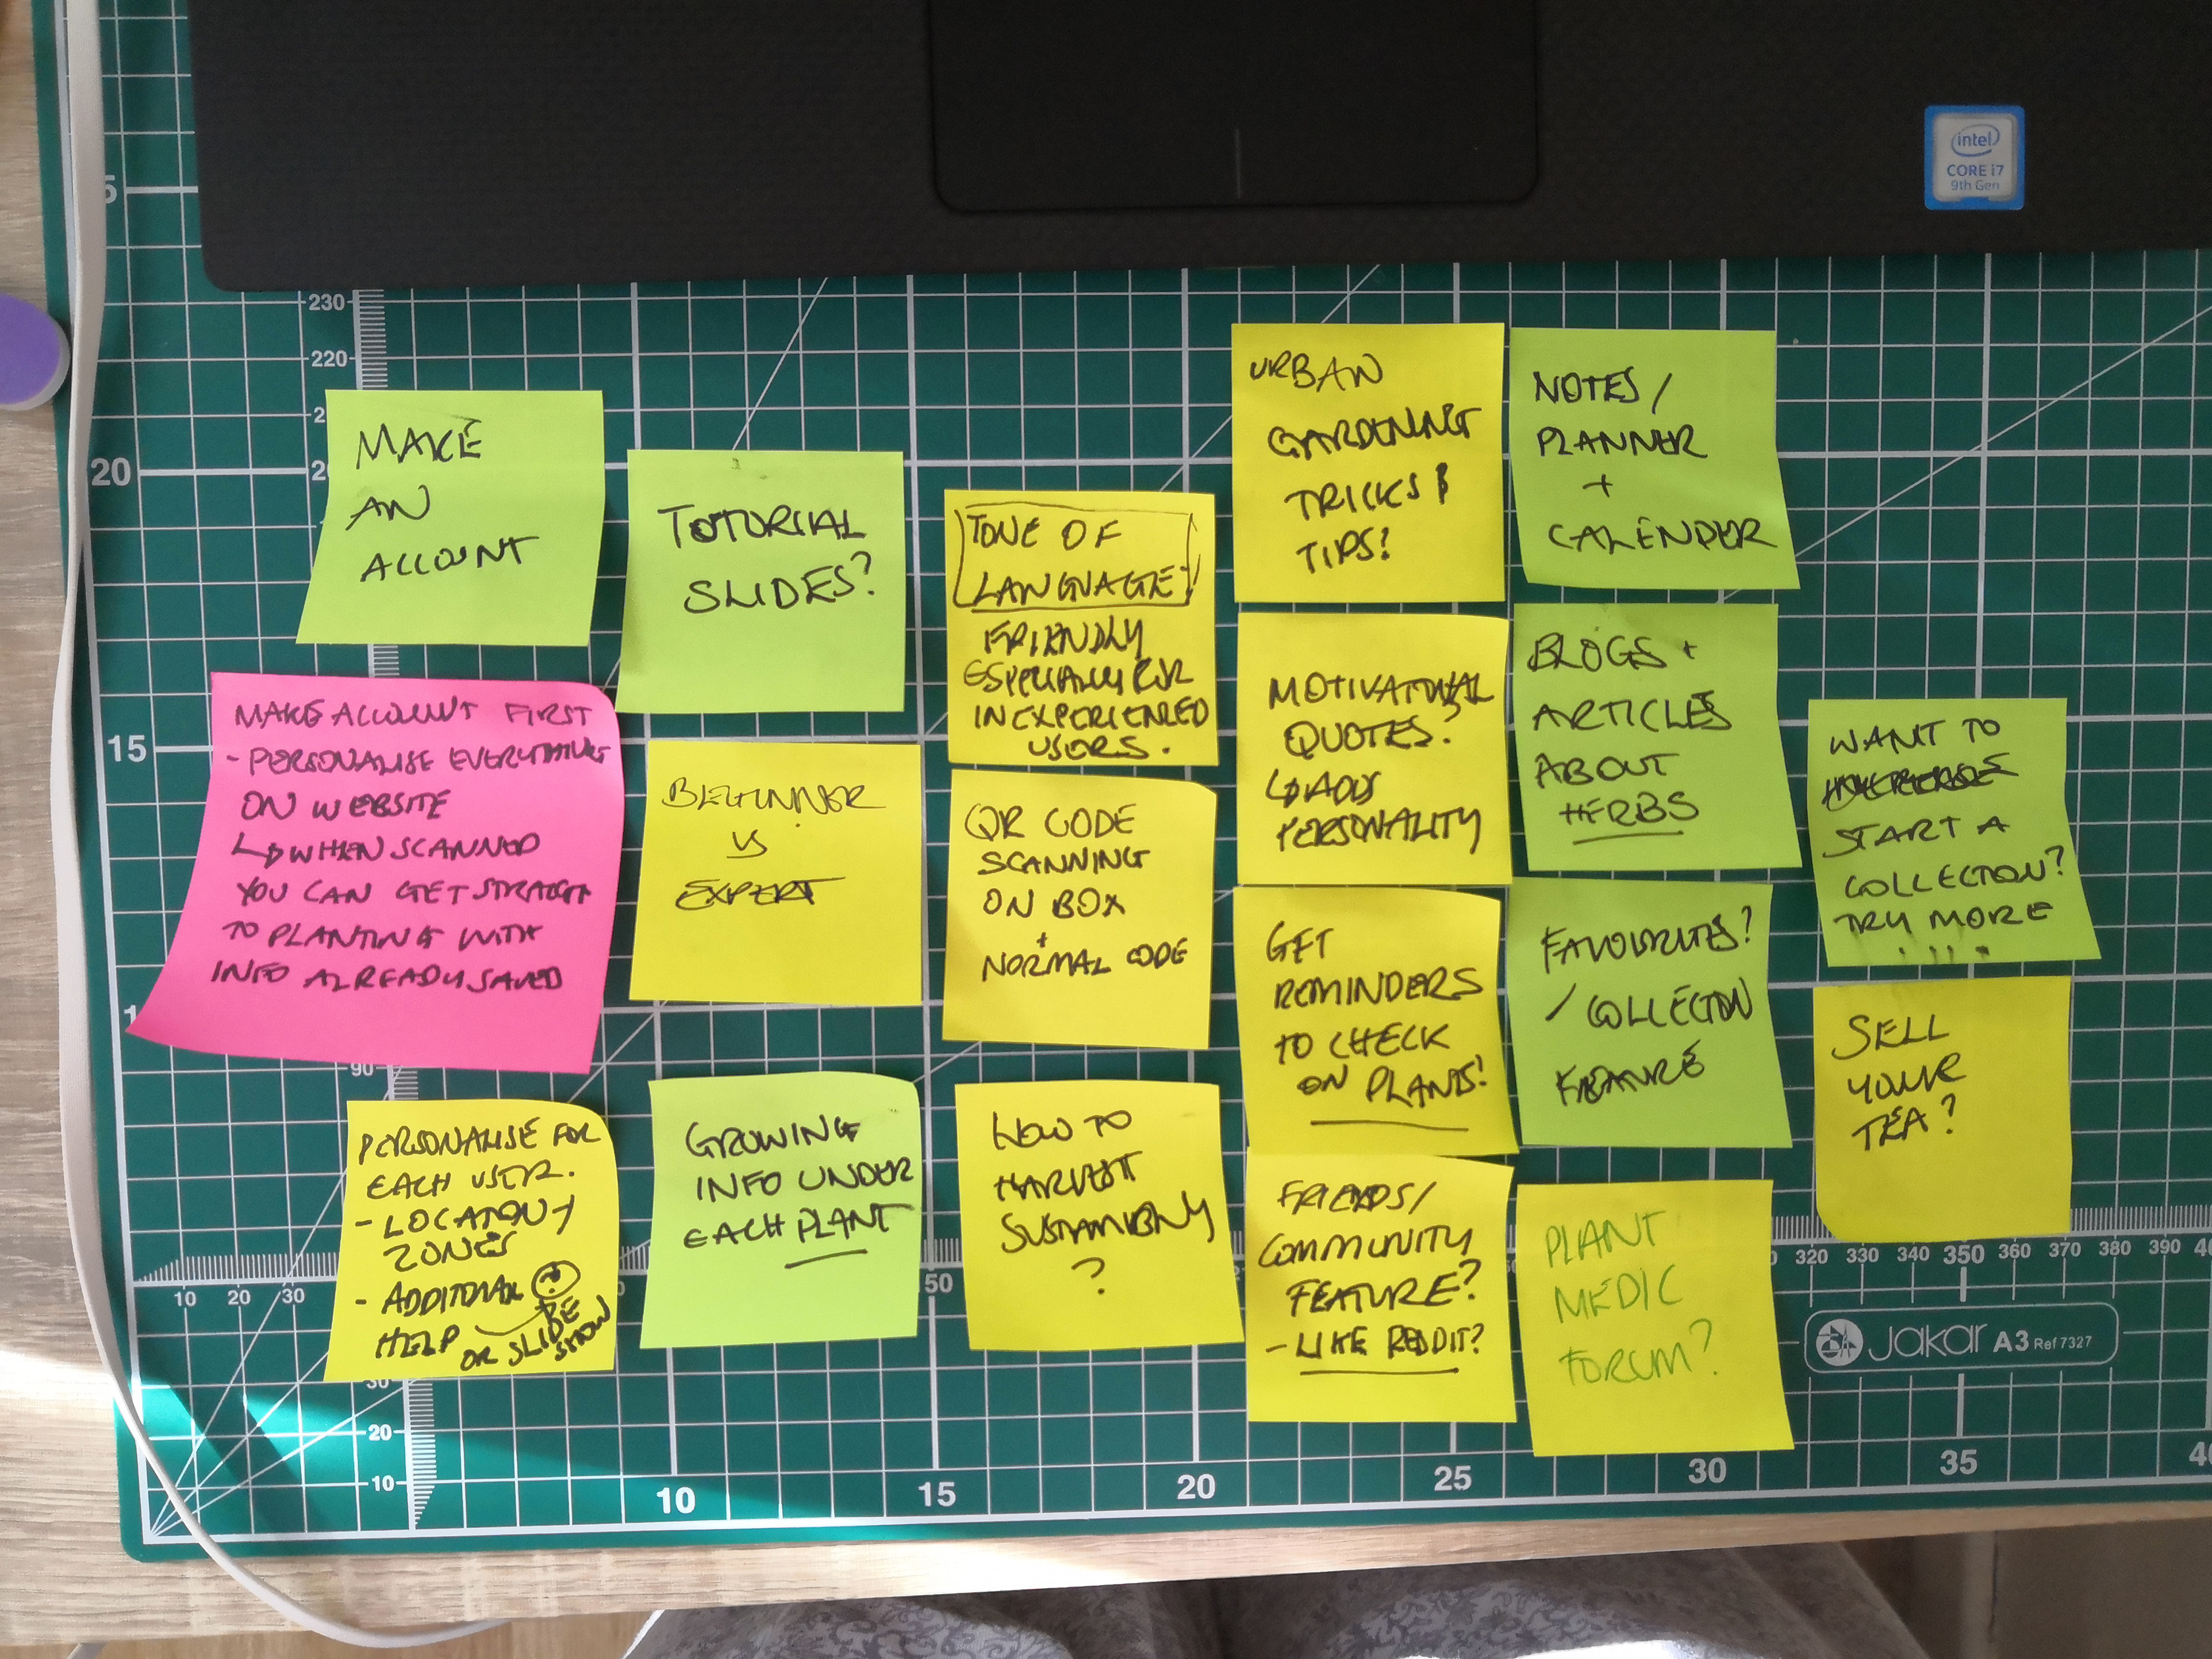 intel
CORE i7
9th Gen
MAKE
AN
ACCOUNT
MAKE ACCOUNT FIRST
- PERSONALISE EVERYTHING
ON WEBSITE
↳ WHEN SCANNED
YOU CAN GET STRAIGHT
TO PLANTING WITH
INFO ALREADY SAVED
PERSONALISE FOR
EACH USER.
- LOCATION /
ZONES
- ADDITIONAL
HELP
OR SLIDE
SHOW
TUTORIAL
SLIDES?
BEGINNER
VS
EXPERT
GROWING
INFO UNDER
EACH PLANT
TONE OF
LANGUAGE!
FRIENDLY
ESPECIALLY FOR
INEXPERIENCED
USERS.
QR CODE
SCANNING
ON BOX
+
NORMAL CODE
HOW TO
HARVEST
SUSTAINIBLY
?
URBAN
GARDENING
TRICKS &
TIPS!
MOTIVATIONAL
QUOTES?
↳ ADDS
PERSONALITY
GET
REMINDERS
TO CHECK
ON PLANTS!
FRIENDS/
COMMUNITY
FEATURE?
- LIKE REDDIT?
NOTES/
PLANNER
+
CALENDER
BLOGS +
ARTICLES
ABOUT
HERBS
FAVOURITES?
/ COLLECTION
FEATURE
PLANT
MEDIC
FORUM?
WANT TO
START A
COLLECTION?
TRY MORE
....
SELL
YOUR
TEA?
230
220
20
15
90
10 20 30
50
320 330 340 350 360 370 380 390
30
20
10
10 15 20 25 30 35
Jakar A3 Ref 7327